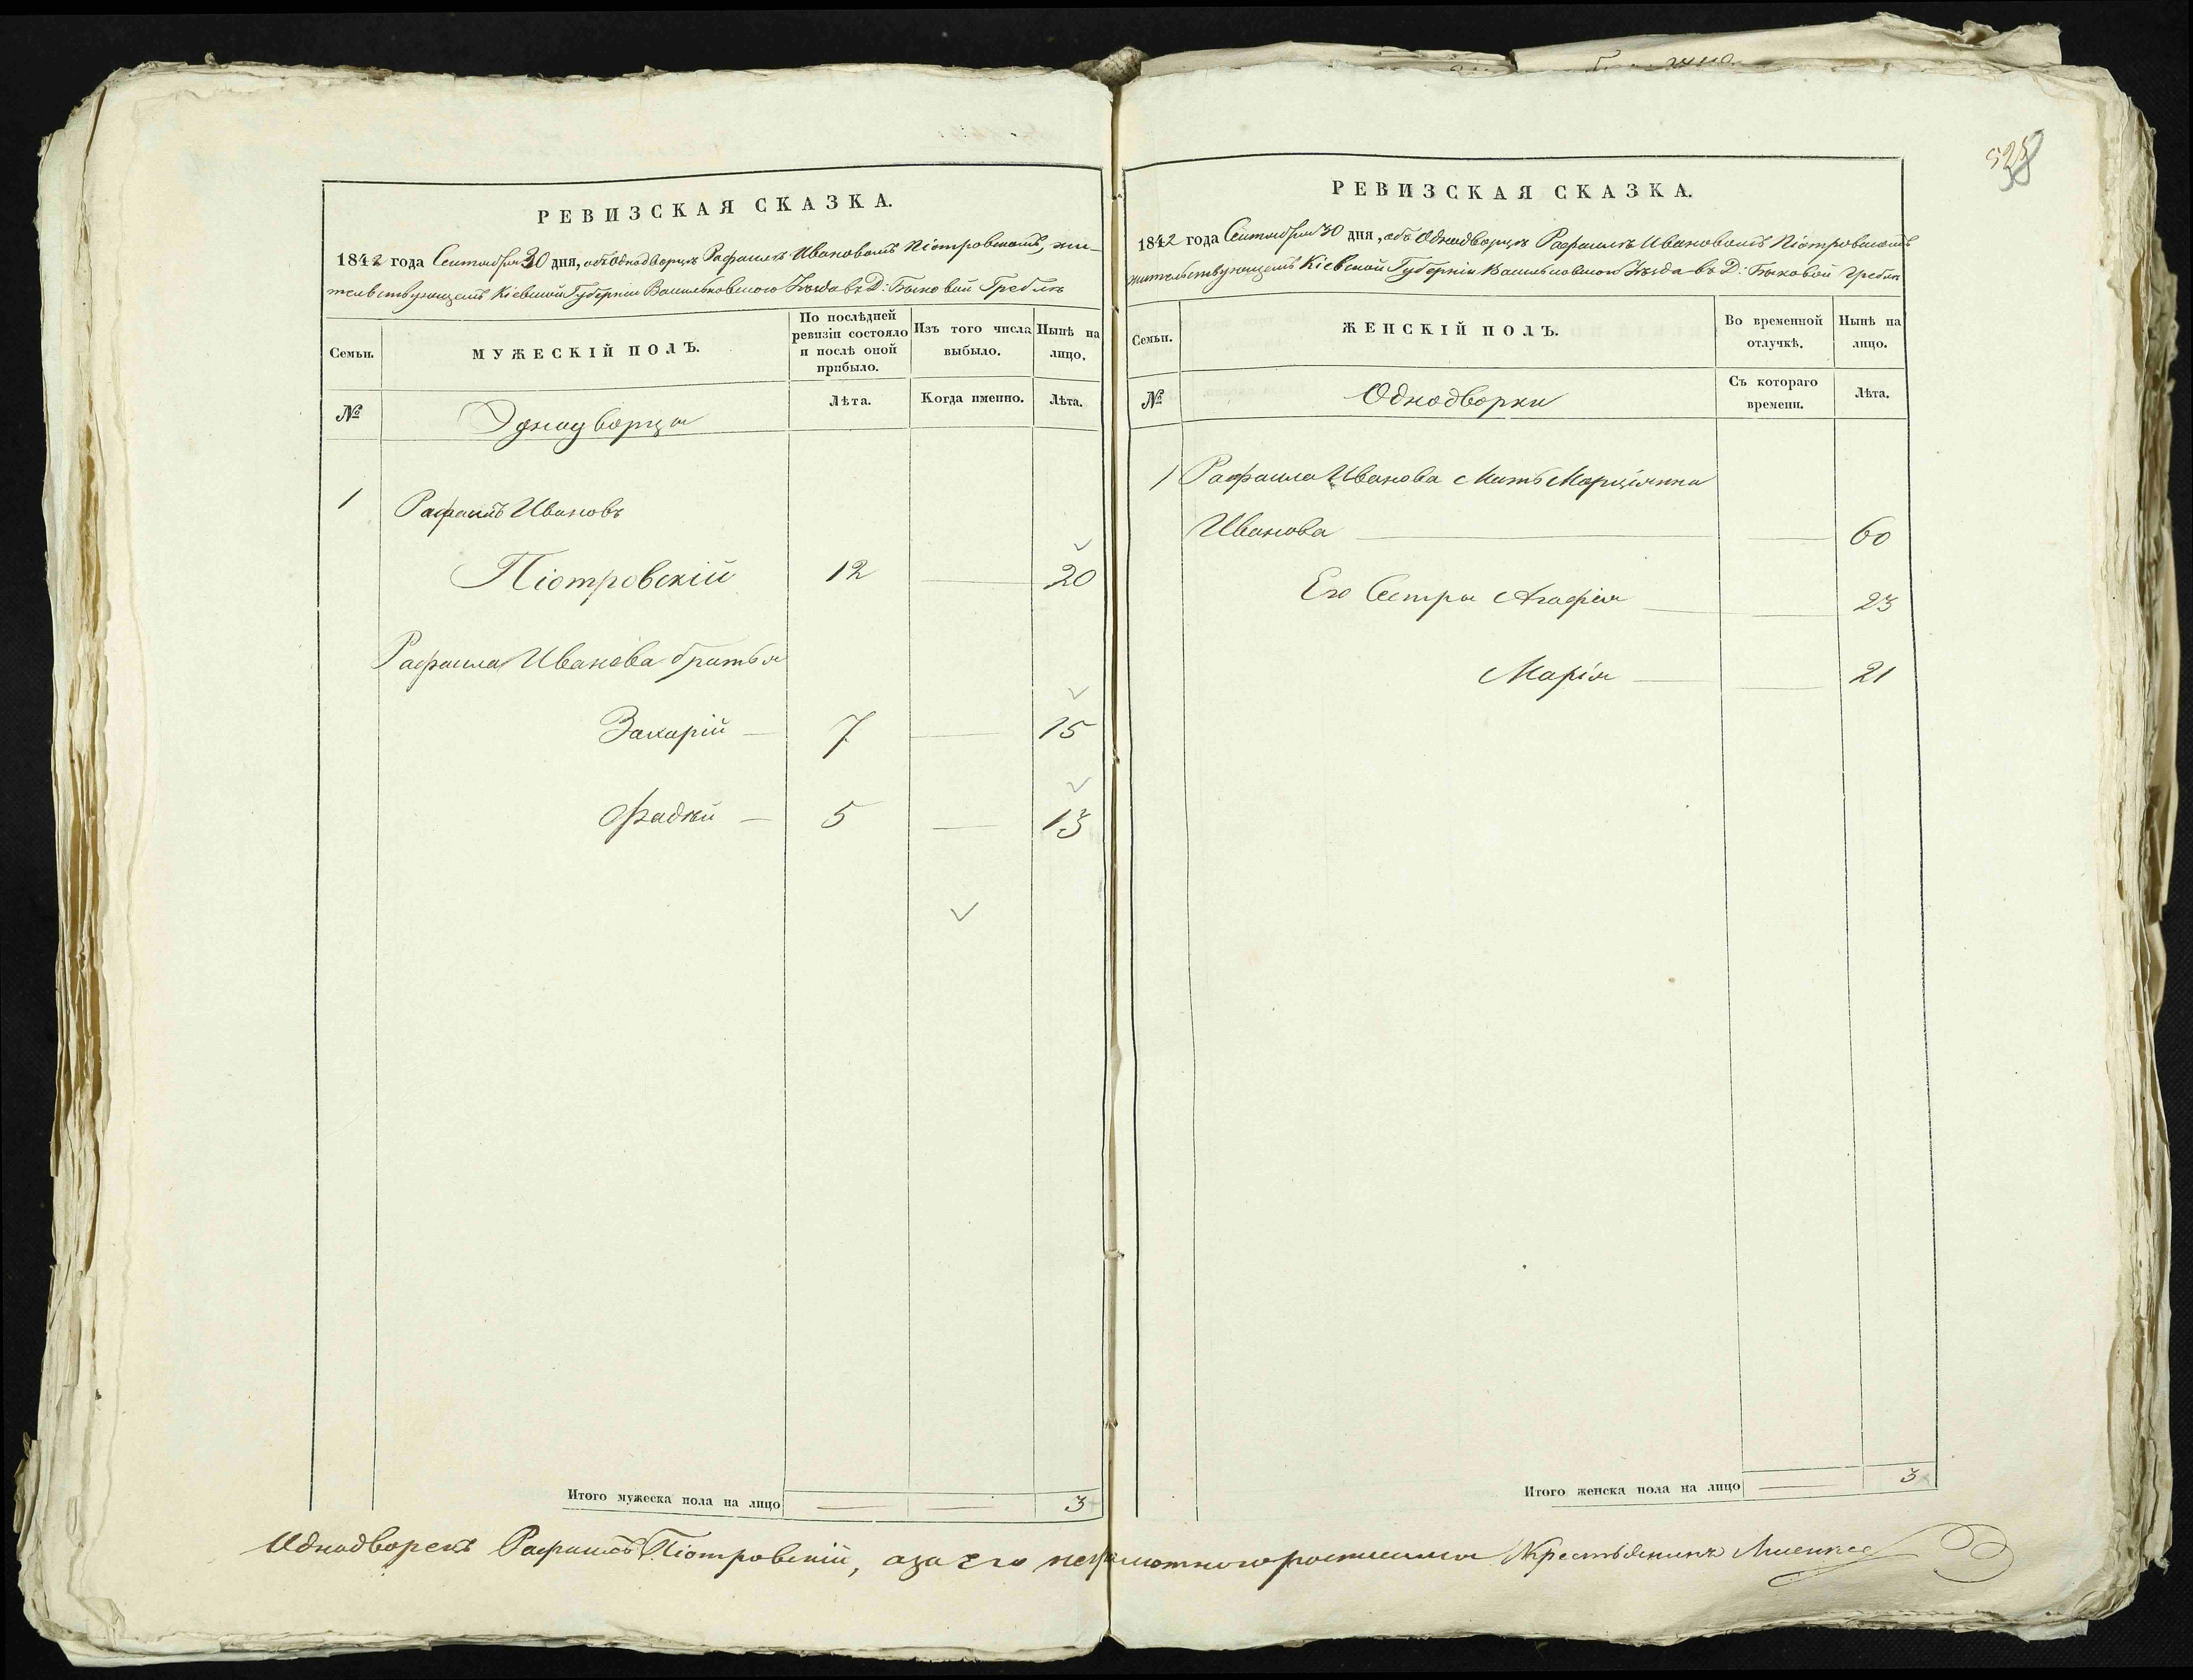 528
РЕВИЗСКАЯ СКАЗКА.
1842 года Сентября 30 дня, объ Однодворцѣ Рафаилѣ Ивановомъ Піотровскомъ, жи-
тельствующемъ Кіевской Губерніи Васильковскаго Уѣзда въ Д: Быковой Греблѣ
Семьи.
МУЖЕСКІЙ ПОЛЪ.
По послѣдней ревизіи состояло и послѣ оной прибыло.
Изъ того числа выбыло.
Нынѣ на лицо.
№
Однодворцы
Лѣта.
Когда именно.
Лѣта.
1 Рафаилъ Ивановъ
Піотровскій 12 20
Рафаила Иванова братья
Захарій 7 15
Фадѣй 5 13
Итого мужеска пола на лицо 3
РЕВИЗСКАЯ СКАЗКА.
1842 года Сентября 30 дня, объ Однодворцѣ Рафаилѣ Ивановомъ Піотровскомъ
жительствующемъ Кіевской Губерніи Васильковскаго Уѣзда въ Д: Быковой Греблѣ
Семьи.
ЖЕНСКІЙ ПОЛЪ.
Во временной отлучкѣ.
Нынѣ на лицо.
№
Однодворки
Съ котораго времени.
Лѣта.
1 Рафаила Иванова Мать Марціянна
Иванова 60
Его Сестры Агафія 23
Марія 21
Итого женска пола на лицо 3
Однодворецъ Рафаилъ Піотровскій, а за его неграмотного росписался Крестьянинъ